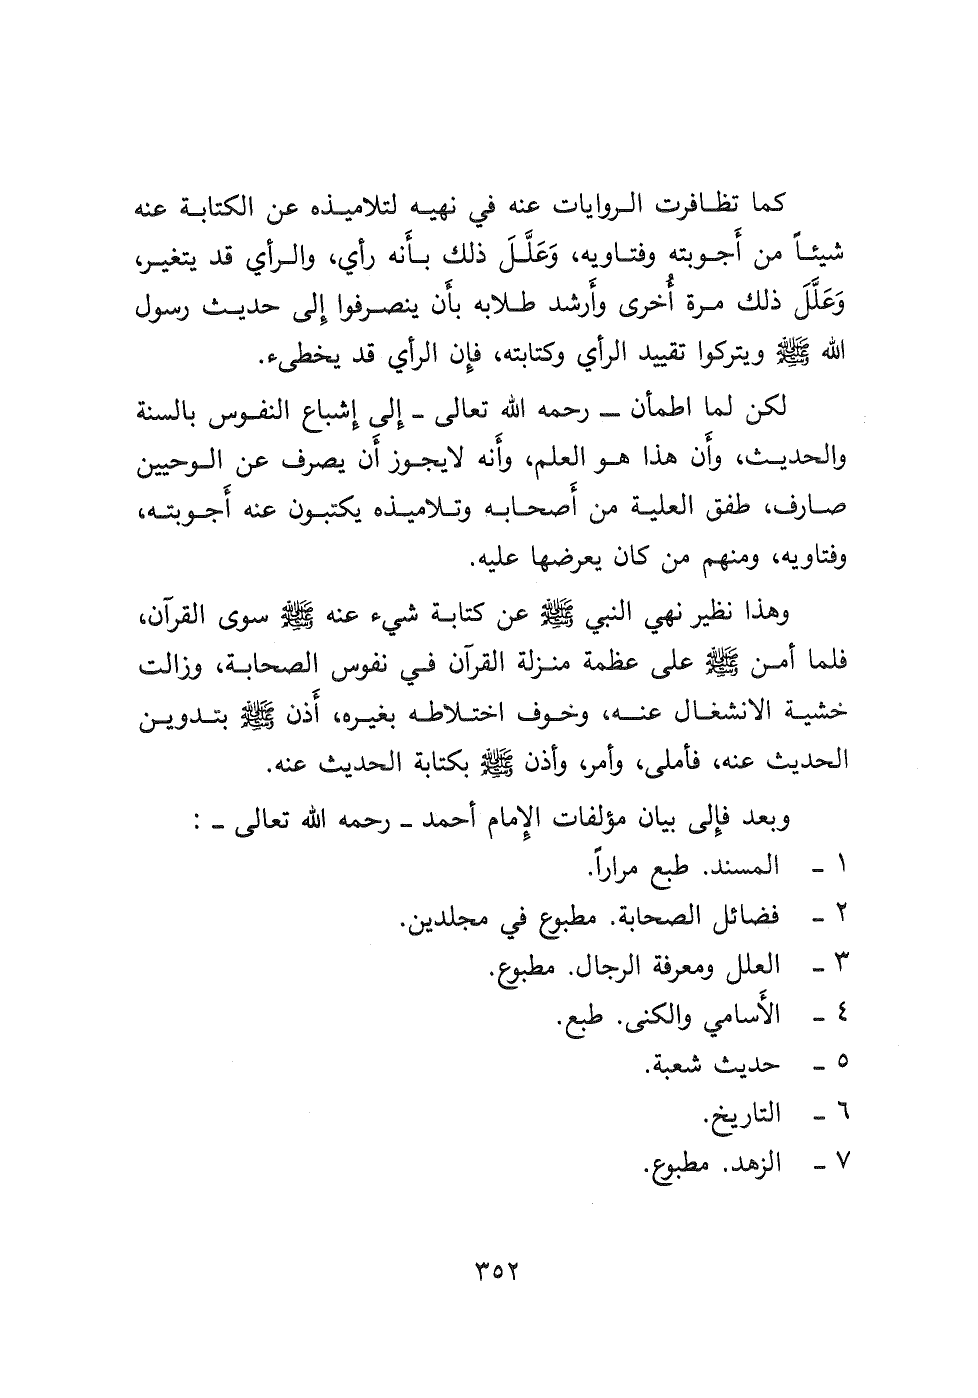 كما تظافرت الروايات عنه في نهيه لتلاميذه عن الكتابة عنه
شيئاً من أَجوبته وفتاويه، وَعَلَّلَ ذلك بأَنه رأي، والرأي قد يتغير،
وَعَلَّلَ ذلك مرة أُخرى وأَرشد طلابه بأَن ينصرفوا إِلى حديث رسول
الله ﷺ ويتركوا تقييد الرأي وكتابته، فإِن الرأي قد يخطىء.
لكن لما اطمأن ـ رحمه الله تعالى ـ إِلى إِشباع النفوس بالسنة
والحديث، وأَن هذا هو العلم، وأَنه لايجوز أَن يصرف عن الوحيين
صارف، طفق العلية من أَصحابه وتلاميذه يكتبون عنه أَجوبته،
وفتاويه، ومنهم من كان يعرضها عليه.
وهذا نظير نهي النبي ﷺ عن كتابة شيء عنه ﷺ سوى القرآن،
فلما أمن ﷺ على عظمة منزلة القرآن في نفوس الصحابة، وزالت
خشية الانشغال عنه، وخوف اختلاطه بغيره، أَذن ﷺ بتدوين
الحديث عنه، فأملى، وأمر، وأذن ﷺ بكتابة الحديث عنه.
وبعد فإِلى بيان مؤلفات الإِمام أحمد ـ رحمه الله تعالى ـ :
١ ـ المسند. طبع مراراً.
٢ ـ فضائل الصحابة. مطبوع في مجلدين.
٣ ـ العلل ومعرفة الرجال. مطبوع.
٤ ـ الأَسامي والكنى. طبع.
٥ ـ حديث شعبة.
٦ ـ التاريخ.
٧ ـ الزهد. مطبوع.
٣٥٢